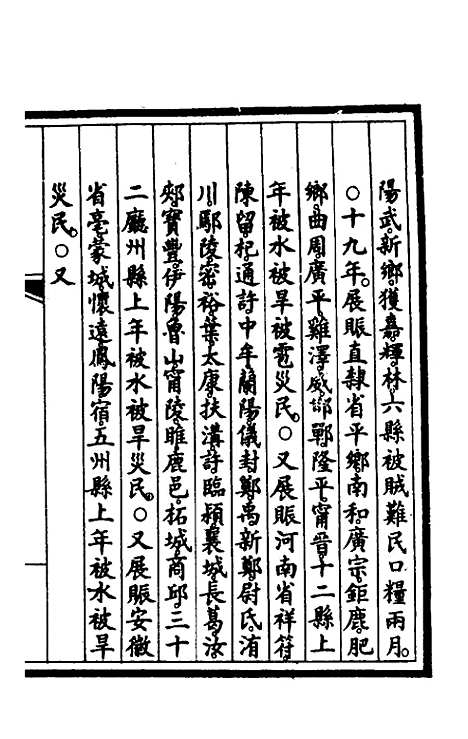 陽武。新鄉。獲嘉。輝。林。六縣被賊難民口糧兩月。
○十九年。展賑直隸省平鄉。南和。廣宗。鉅鹿。肥
鄉。曲周。廣平。雞澤。威。邯鄲。隆平。甯晉。十二縣上
年被水被旱被雹災民。○又展賑河南省祥符。
陳留。杞。通許。中牟。蘭陽。儀封。鄭。禹。新鄭。尉氏。洧
川。鄢陵。密。裕。葉。太康。扶溝。許。臨潁。襄城。長葛。汝。
郟。寶豐。伊陽。魯山。甯陵。睢。鹿邑。柘城。商邱。三十
二廳州縣上年被水被旱災民。○又展賑安徽
省亳。蒙城。懷遠。鳳陽。宿。五州縣上年被水被旱
災民。○又